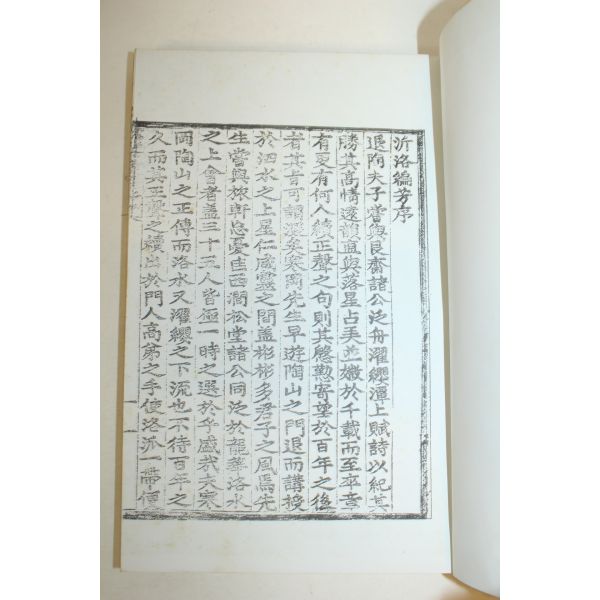 沂洛編芳序
退陶夫子嘗與艮齋諸公泛舟濯纓潭上賦詩以紀其
勝其高情遠韻直與落星占孟並徽於千載而至卒章
有更有何人續正聲之句則其懇懃寄望於百年之後
者其旨可謂深矣寒岡先生早遊陶山之門退而講授
於泗水之上星仁咸靈之間盖彬彬多君子之風焉先
生嘗與旅軒忘憂佳西澗松堂諸公同泛於龍華洛水
之上會者盖三十三人皆極一時之選於乎盛哉夫寒
岡陶山之正傳而洛水又濯纓之下流也不待百年之
久而其正聲之續出於門人高弟之手使洛沂一帶便